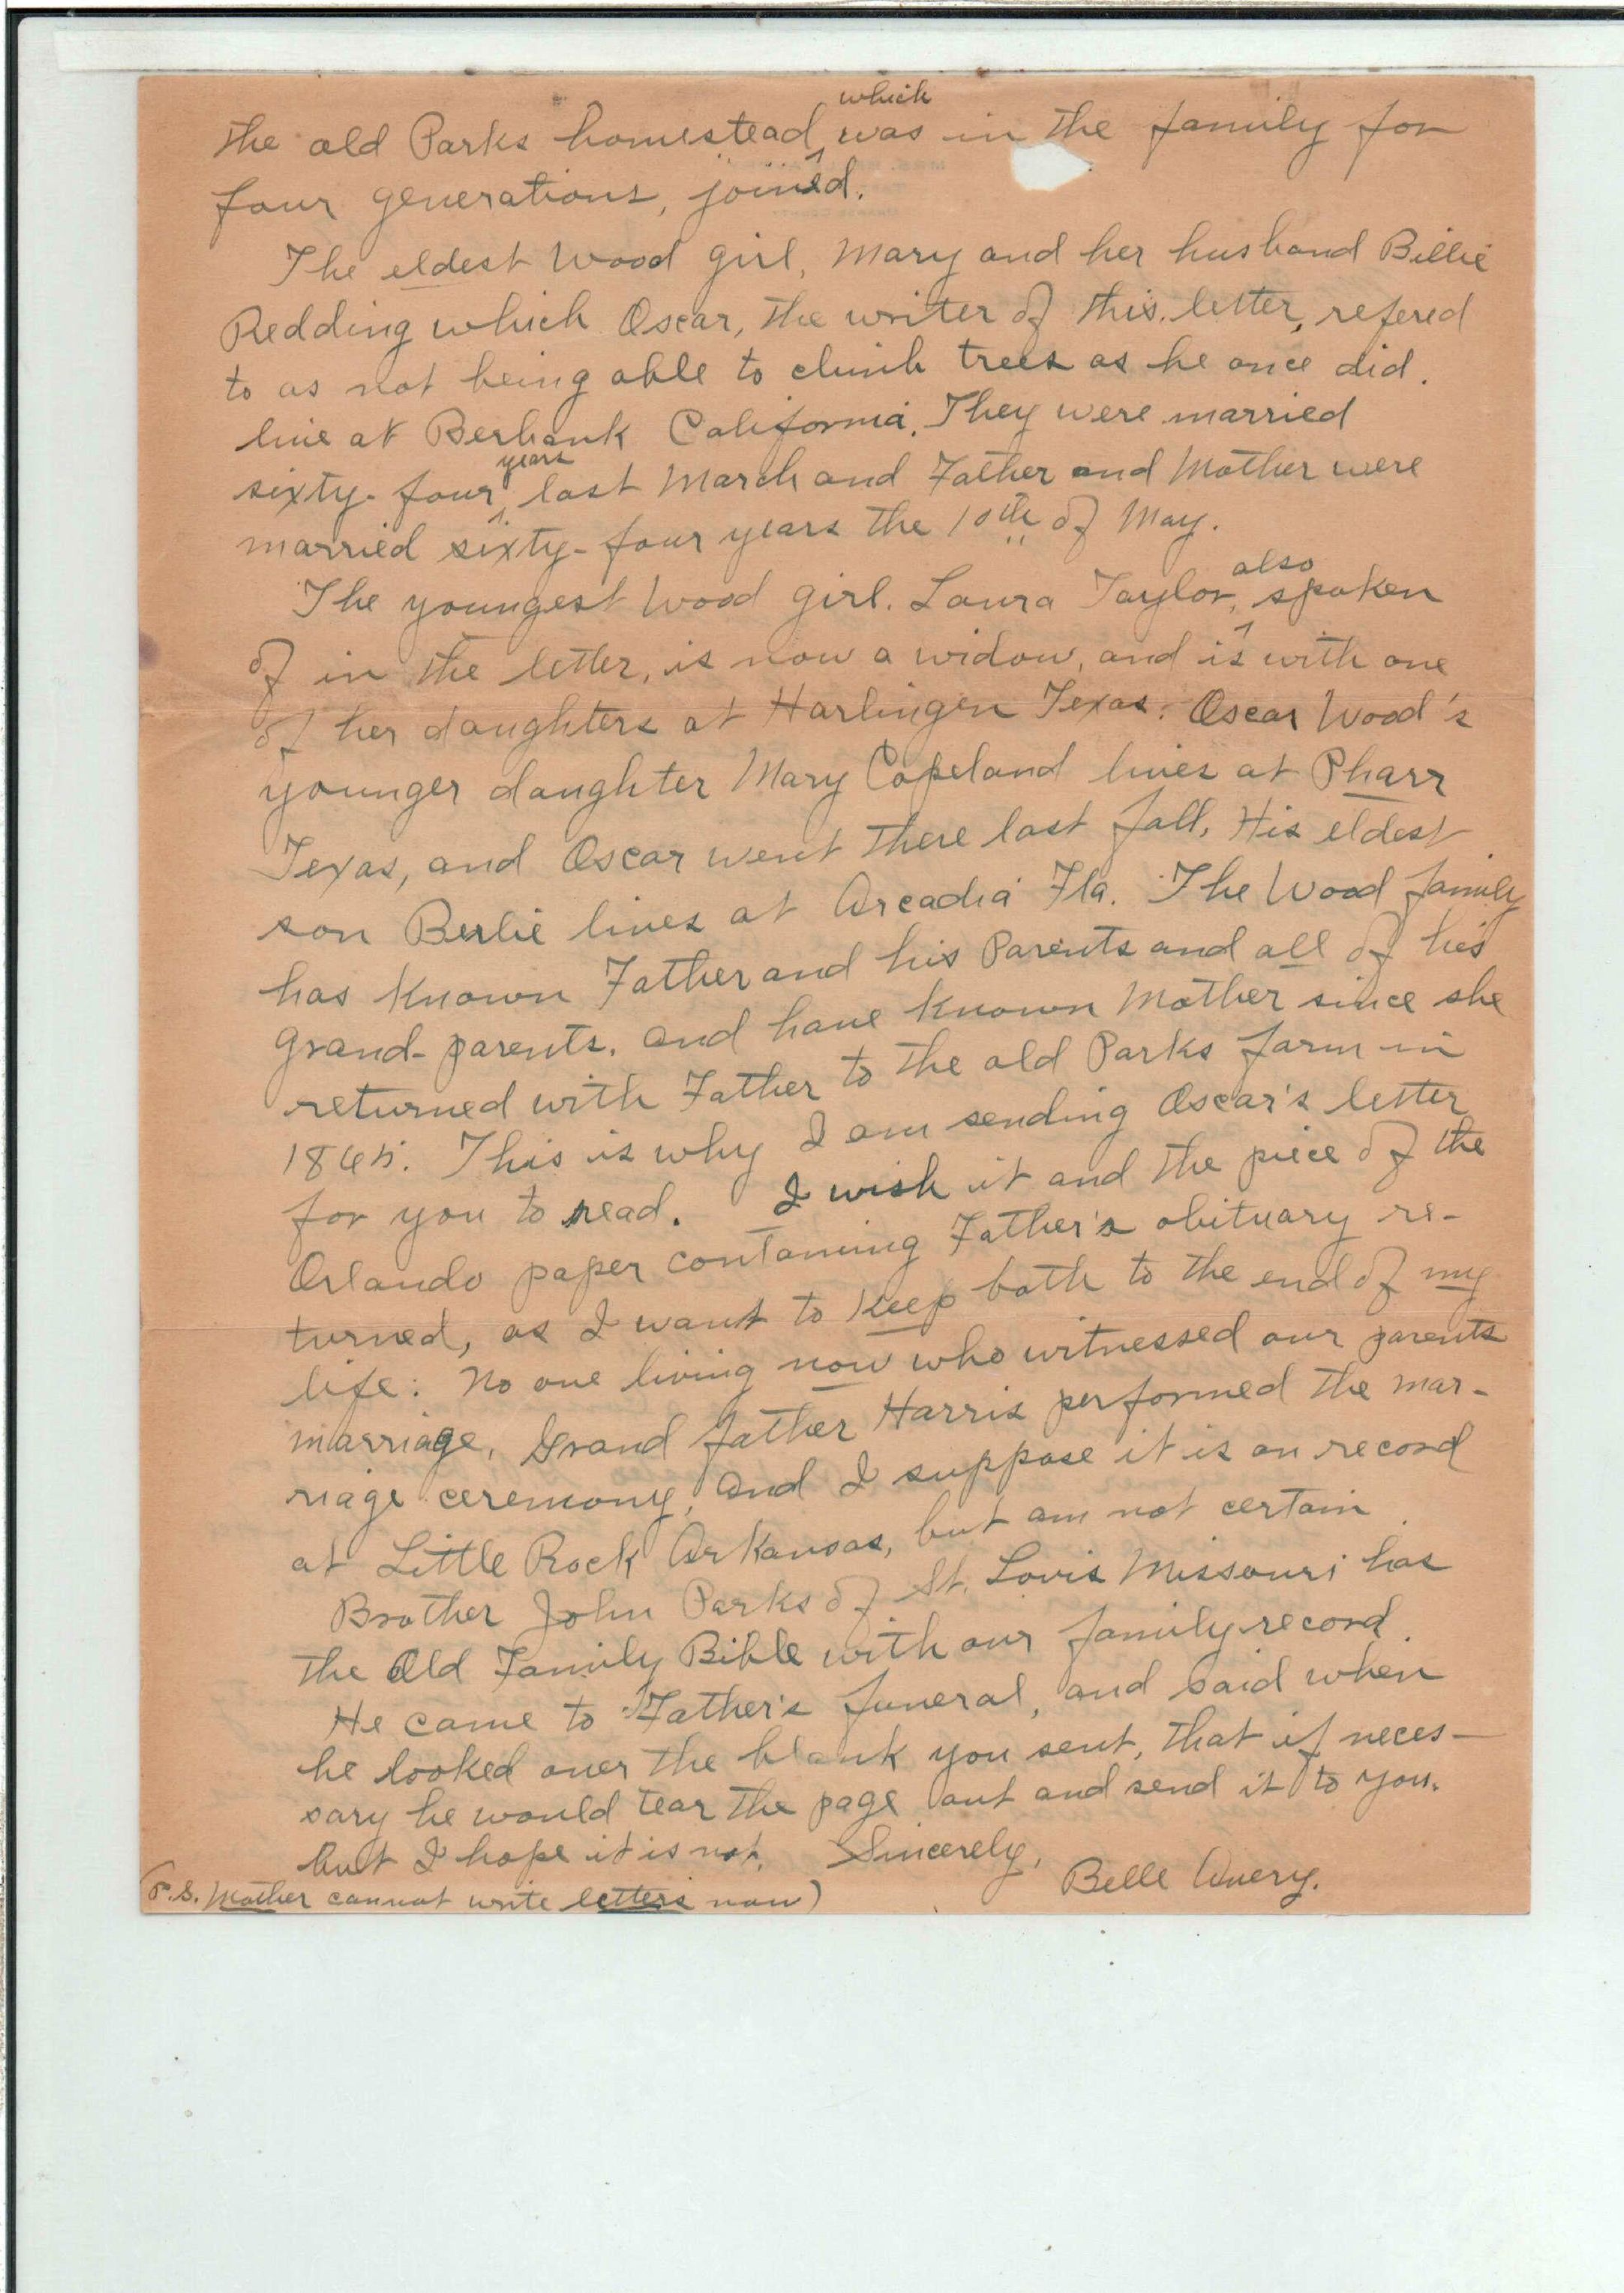 the old Parks homestead, which was in the family for
four generations, joined.
The eldest Wood girl, Mary and her husband Billie
Redding which Oscar, the writer of this letter, refered
to as not being able to climb trees as he once did.
live at Berbank California. They were married
sixty-four years last March and Father and Mother were
married sixty-four years the 10th of May.
The youngest Wood girl. Laura Taylor, also spoken
of in the letter, is now a widow, and is with one
of her daughters at Harlingen Texas. Oscar Wood's
younger daughter Mary Copeland lives at Pharr
Texas, and Oscar went there last fall. His eldest
son Berlie lives at Arcadia Fla. The Wood family
has known Father and his Parents and all of his
grand-parents, and have known Mother since she
returned with Father to the old Parks farm in
1865. This is why I am sending Oscar's letter
for you to read. I wish it and the piece of the
Orlando paper containing Father's obituary re-
turned, as I want to keep both to the end of my
life. No one living now who witnessed our parents
marriage, Grand father Harris performed the mar-
riage ceremony, and I suppose it is on record
at Little Rock Arkansas, but am not certain.
Brother John Parks of St. Louis Missouri has
the Old Family Bible with our family record.
He came to Father's funeral, and said when
he looked over the blank you sent, that if neces-
sary he would tear the page out and send it to you.
but I hope it is not. Sincerely,
Belle Avery.
(P.S. Mother cannot write letters now)